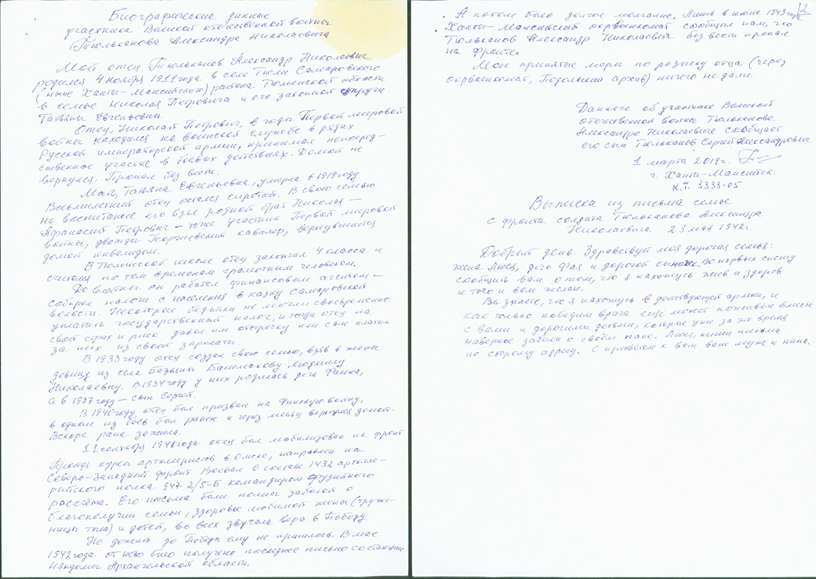 Биографические данные
участника Великой отечественной войны
Тюлюканова Александра Николаевича
Мой отец Тюльканов Александр Николаевич
родился 4 ноября 1911 года в селе Тюли Самаровского
(ныне Ханты-Мансийского) района Тюменской области
в семье Николая Петровича и его законной супруги
Татьяны Евгеньевны.
Отец, Николай Петрович, в годы Первой мировой
войны находился на воинской службе в рядах
Русской императорской армии, принимал непосред-
ственное участие в боевых действиях. Домой не
вернулся. Пропал без вести.
Мать, Татьяна Евгеньевна, умерла в 1919 году
Восьмилетний отец остался сиротой. В свою семью
на воспитание его взял родной брат Николая —
Афанасий Петрович — тоже участник Первой мировой
войны, дважды Георгиевский кавалер, вернувшийся
домой инвалидом.
В Тюлинской школе отец закончил 4 класса и
считался по тем временам грамотным человеком.
До войны он работал финансовым агентом —
собирал налоги с населения в казну Самаровской
волости. Некоторые бедняки не могли своевременно
уплатить государственный налог, и отец на
свой страх и риск давал им отсрочку или сам платил
за них из своей зарплаты.
В 1933 году отец создал свою семью, взяв в жёны
девицу из села Базьяны Башмакову Людмилу
Николаевну. В 1934 году у них родилась дочь Фаина,
а в 1937 году — сын Сергей.
В 1940 году отец был призван на Финскую войну,
в одном из боёв был ранен и через месяц вернулся домой.
Вскоре рана зажила.
11 сентября 1941 года отец был мобилизован на фронт
Пройдя курсы артиллеристов в Омске, направлен на
Северо-Западный фронт. Воевал в составе 1432 артилле-
рийского полка 947-2/5-Б командиром орудийного
расчёта. Его письма были полны заботой о
благополучии семьи, здоровье любимой жены (труже-
ницы тыла) и детей, во всех звучала вера в Победу
Но дожить до Победы ему не пришлось. В мае
1942 года от него было получено последнее письмо со станции
Няндома Архангельской области.
А потом было долгое молчание. Лишь в июне 1943 года
Ханты-Мансийский окрвоенкомат сообщил нам, что
Тюльканов Александр Николаевич без вести пропал
на фронте.
Мои принятые меры по розыску отца (через
окрвоенкомат, Подольский архив) ничего не дали.
Данные об участнике Великой
отечественной войны Тюльканове
Александре Николаевиче сообщает
его сын Тюльканов Сергей Александрович
1 марта 2019 г.
г. Ханты-Мансийск.
К.т. 3333-05
Выписка из письма семье
с фронта солдата Тюльканова Александра
Николаевича 23 мая 1942 г.
Добрый день. Здравствуй моя дорогая семья:
жена Люся, дочь Фая и дорогой сыночек. Во первых спешу
сообщить вам о том, что я нахожусь жив и здоров
и того и вам желаю.
Вы знаете, что я нахожусь в действующей армии, и
как только победим врага ещё может поживём вместе
с вами и дорогими детьми, которые уже за это время
наверное забыли о своём папе. Люся, пиши письма
по старому адресу. С приветом к вам ваш муж и папа.